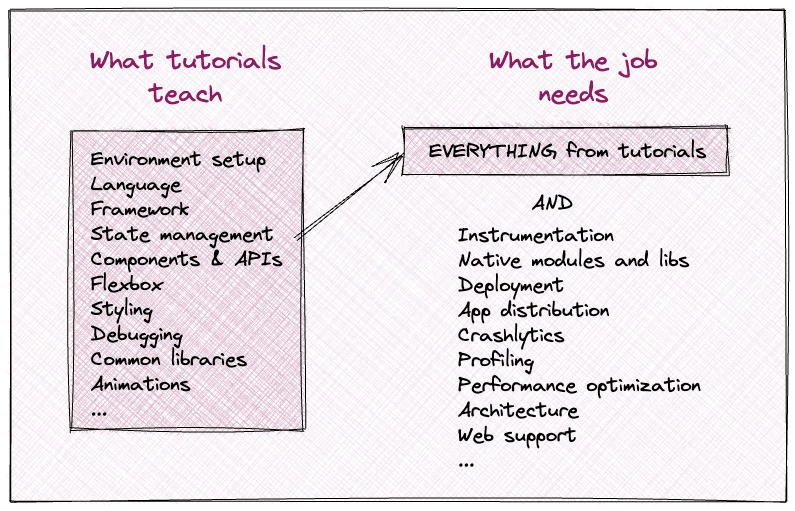 What tutorials
teach
Environment setup
Language
Framework
State management
Components & APIs
Flexbox
Styling
Debugging
Common libraries
Animations
...
What the job
needs
EVERYTHING from tutorials
AND
Instrumentation
Native modules and libs
Deployment
App distribution
Crashlytics
Profiling
Performance optimization
Architecture
Web support
...